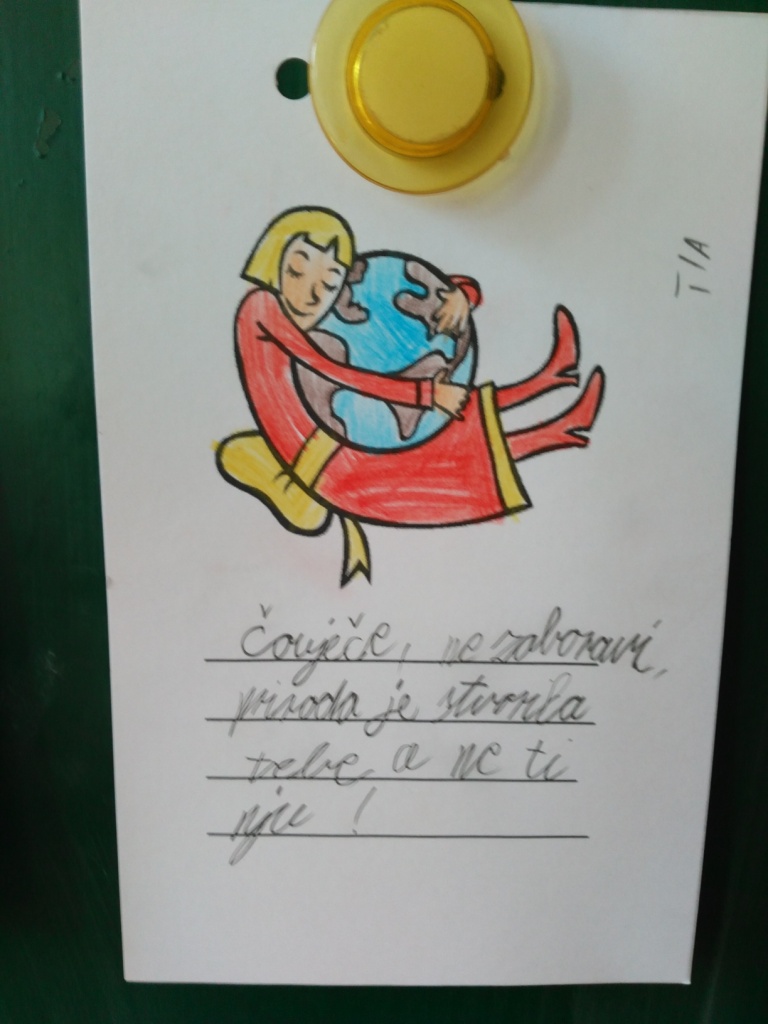 TIA
Čovječe, ne zaboravi,
priroda je stvorila
tebe, a ne ti
nju!